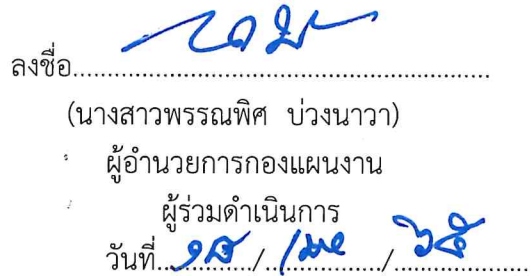 ลงชื่อ......................................................
(นางสาวพรรณพิศ บ่วงนาวา)
ผู้อำนวยการกองแผนงาน
ผู้ร่วมดำเนินการ
วันที่............/............/............